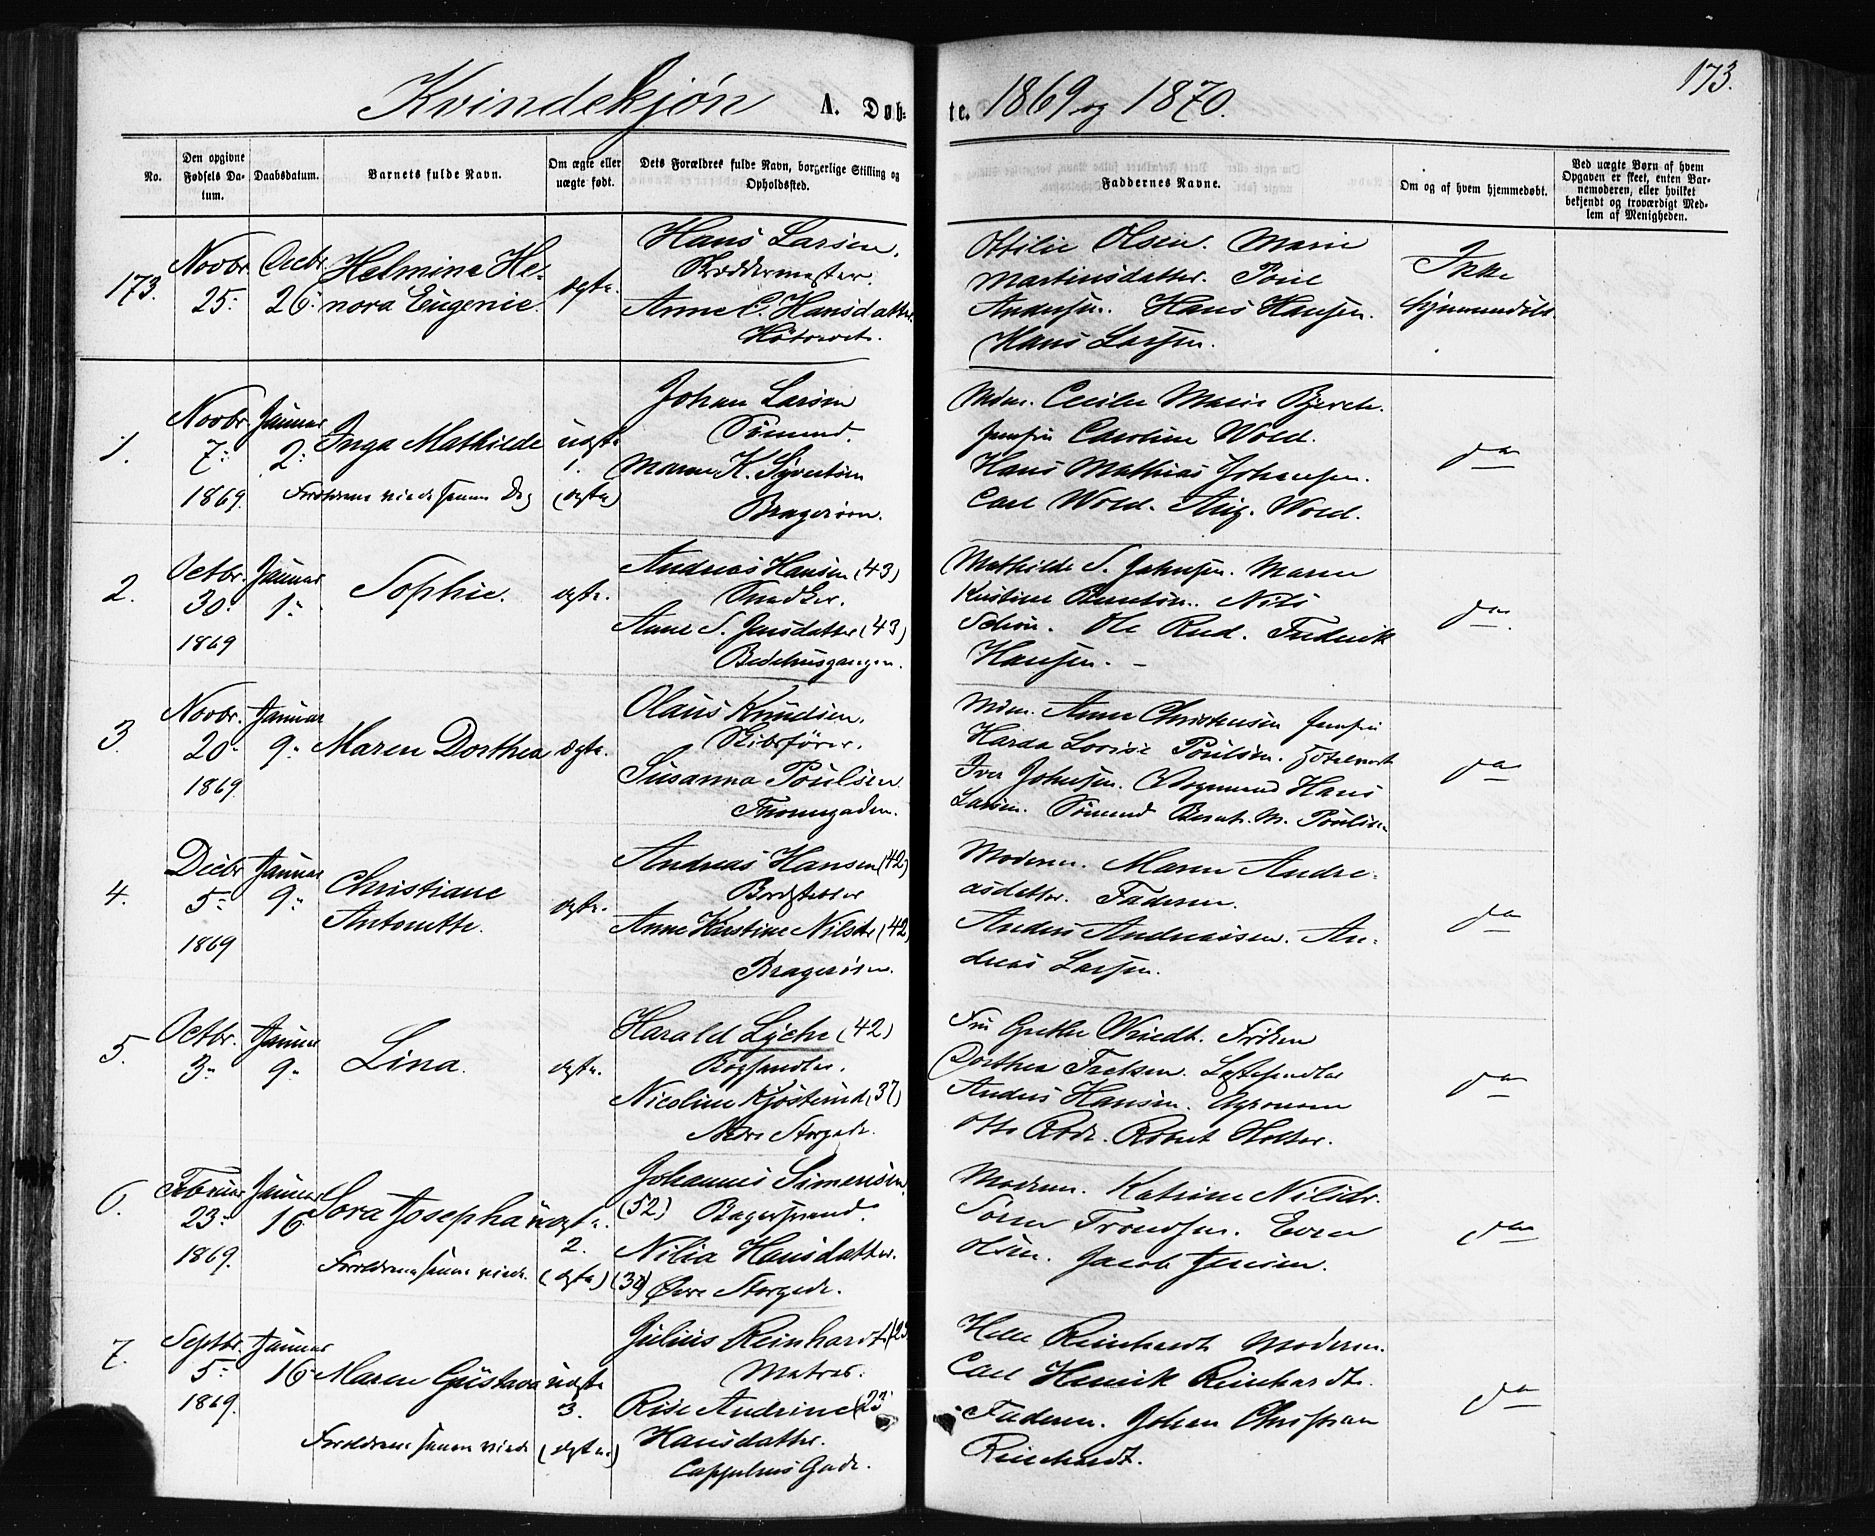 Kvindekjøn A. Døb- te. 1869 og 1870. 173.
No.
Den opgivne Fødsels Da-
tum.
Daabsdatum.
Barnets fulde Navn.
Om ægte eller
uægte født.
Dets Forældres fulde Navn, borgerlige Stilling og
Opholdssted.
Faddernes Navne.
Om og af hvem hjemmedøbt.
Ved uægte Børn af hvem
Opgaven er skeet, enten Bar-
nemoderen, eller hvilket
bekjendt og troværdigt Med-
lem af Menigheden.
173.
Novbr.
25.
Decbr.
26.
Helmine He-
nora Eugenie.
ægte.
Hans Larsen.
Skræddermester.
Anne C. Hansdatter.
Høtorvet.
Ottilie Olsen. Marie
Martinsdatter. Poul
Andersen. Hans Hansen.
Hans Larsen.
Ikke
hjemmedøbt.
1.
Novbr.
7.
1869.
Januar
2.
Inga Mathilde
Forældrene viede samme Dag
uægte
1.
(ægte)
Johan Larsen
Sømand.
Maren K. Syvertsen
Bragerøen.
Mdm. Cecilie Marie Bjerch.
Jomfru Caroline Wold.
Hans Mathias Johansen.
Carl Wold. Aug. Wold.
do
2.
Octbr.
30.
1869
Januar
1.
Sophie.
ægte.
Andreas Hansen (43)
Snedker.
Anne S. Jensdatter (43)
Bedehusgangen.
Mathilde S. Johnsen. Maren
Kristine Berntsen. Nils
Schou. Ole Rud. Fredrik
Hansen.
do.
3.
Novbr.
20.
1869.
Januar
9.
Maren Dorthea
ægte.
Olaus Knudsen.
Skibsfører.
Susanna Poulsen
Thornegaden.
Mdm. Anne Christensen Jomfru
Harda Lovise Poulsen. Hotelvert
Iver Johnsen. Vognmand Hans
Larsen. Sømand Bernt. M. Poulsen
do
4.
Decbr
5.
1869
Januar
9.
Christiane
Antonette.
ægte.
Andreas Hansen (42)
Bordstabler
Anne Kirstine Nilsdr (42)
Bragerøen.
Moderen. Maren Andre-
asdatter. Faderen.
Anders Andreassen. An-
dreas Larsen.
do
5.
Octbr.
3.
Januar
9.
Lina.
ægte.
Harald Lyche (42)
Boghandler.
Nicoline Kjøsterud (37)
Nedre Storgade.
Fru Grethe Windt. Frøken
Dorthea Falksen. Lastehandler
Anders Hansen. Agronom
Otto Rode. Robert Holter.
do
6.
Februar
23.
1869.
Januar
16.
Sora Josepha
Forældrene senere viede.
uægte.
2.
(ægte)
Johannes Simensen.
(52) Bagersvend.
Nilia Hansdatter.
Øvre Storgade.
Moderen. Katrine Nilsdr.
Søren Trondsen. Even
Olsen. Jacob Jensen.
do
7.
Septbr.
5.
1869.
Januar
16
Maren Gustava
Forældrene senere viede
uægte
3.
(ægte)
Julius Reinhardt
Matros.
Rise Andrine (23
Hansdatter.
Cappelens Gade.
Helle Reinhardt Moderen.
Carl Henrik Reinhardt.
Faderen. Johan Christian
Reinhardt.
do